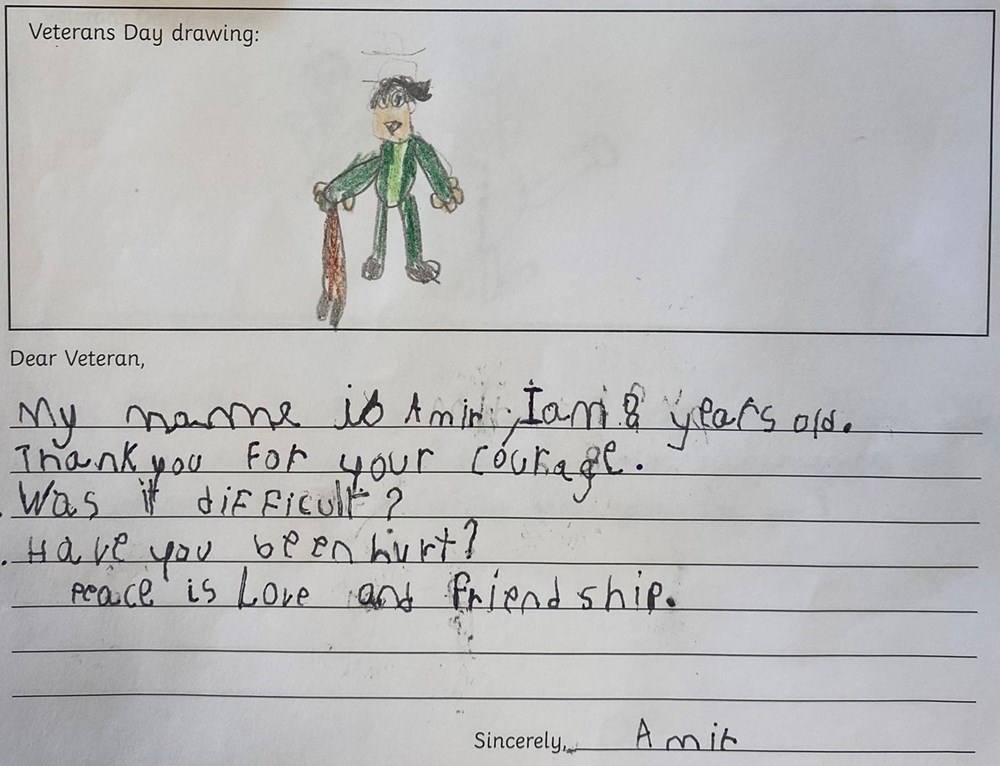 Veterans Day drawing:
Dear Veteran,
My name is Amir, I am 8 years old.
Thank you For your courage.
. Was it difficult?
. Have you been hurt?
Peace is Love and friendship.
Sincerely, Amir